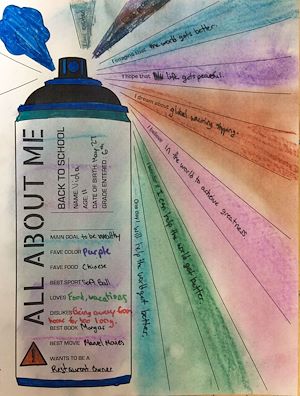 I imagine that the world gets better.
I hope that life gets peaceful.
I dream about global warming stopping.
I believe in the world to achieve greatness
I can help the world get better
One day I will help the world get better.
ALL ABOUT ME
BACK TO SCHOOL
NAME: Viola
AGE: 11
DATE OF BIRTH: May 27
GRADE ENTERED: 6th
MAIN GOAL to be wealthy
FAVE COLOR Purple
FAVE FOOD Chinese
BEST SPORT Soft Ball
LOVES Food, vacations
DISLIKES Being away from
home for too long.
BEST BOOK
BEST MOVIE Marvel Movies
WANTS TO BE A
Restaurant Owner